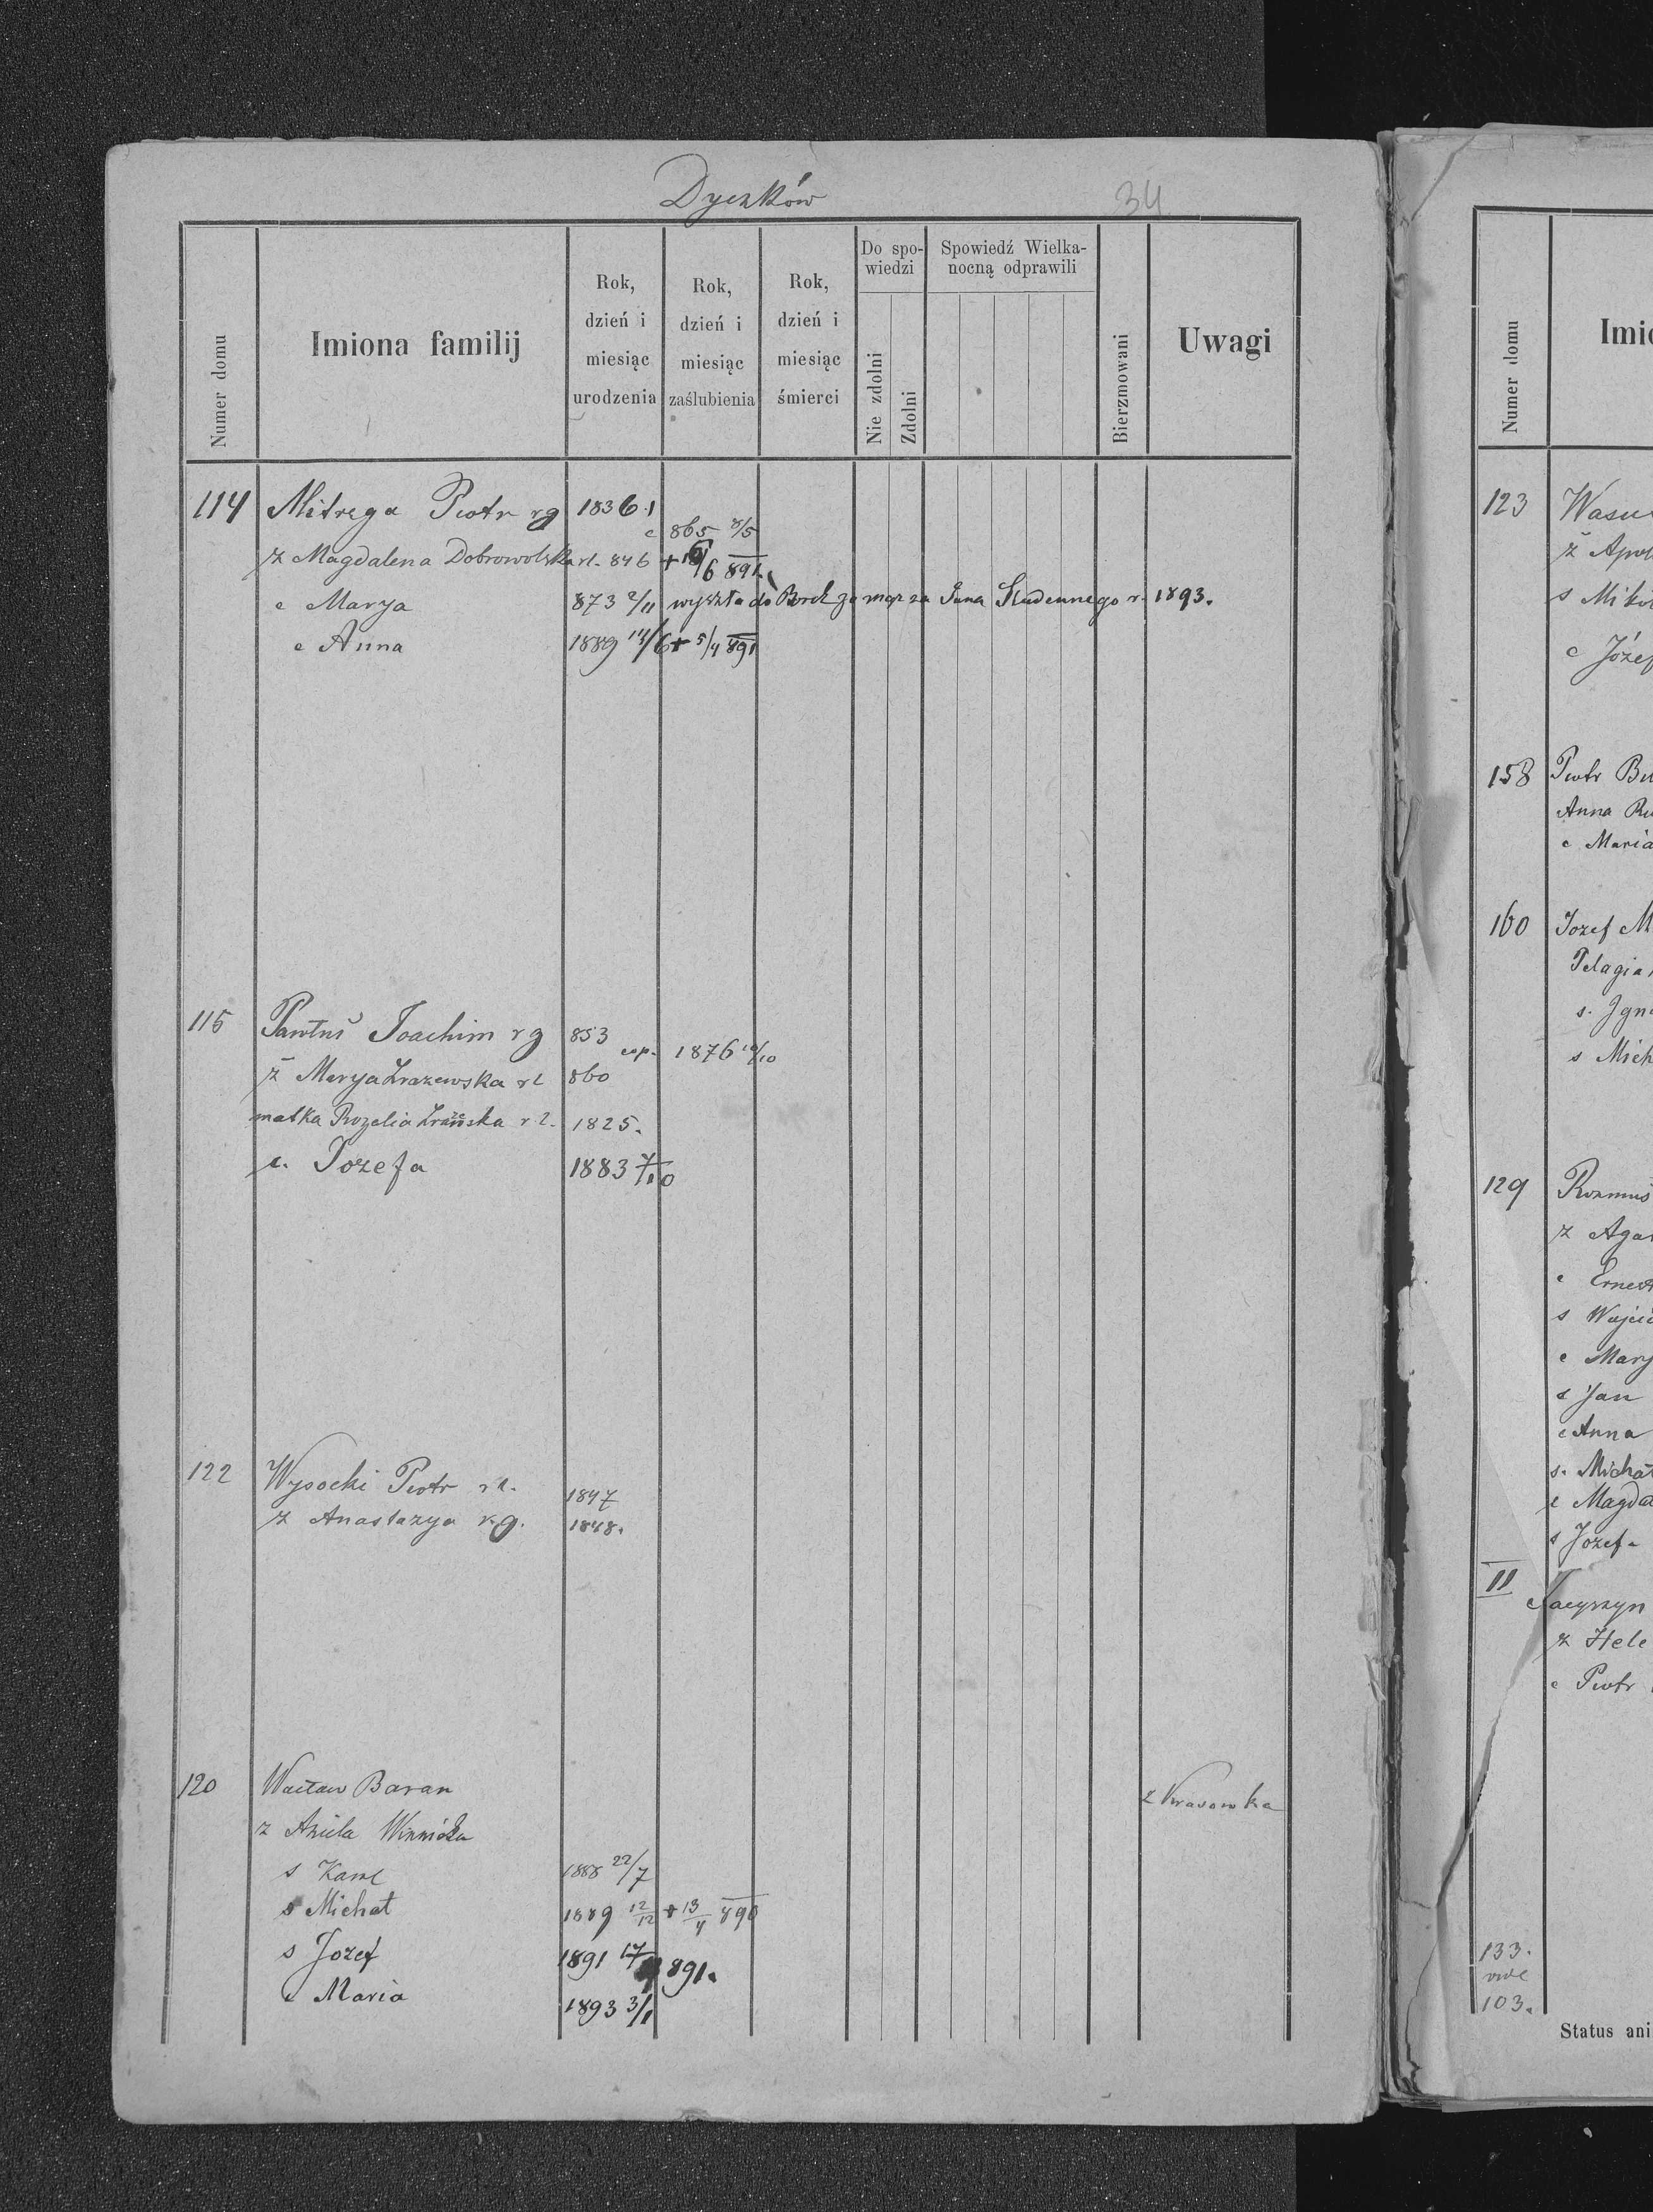 Dyczków
34
Numer domu
Imiona familij
Rok, dzień i miesiąc urodzenia
Rok, dzień i miesiąc zaślubienia
Rok, dzień i miesiąc śmierci
Do spowiedzi
Nie zdolni
Zdolni
Spowiedź Wielkanocną odprawili
Bierzmowani
Uwagi
114 Mitręga Piotr rg 1836.
c 865 8/5
ż Magdalena Dobrowolska rl. 846 + /6 891.
c Marya 873 2/11 wyszła do Borek za mąż za Jana Studennego r. 1893.
c Anna 1889 14/6 + 5/4 891
115 Pawluś Joachim rg 853
cop. 1876 10/10
ż Marya Zrazewska rl 860
matka Rozalia r l. 1825.
c. Jozefa 1883 7/10
122 Wysocki Piotr rl. 1847
ż Anastazya r.g. 1848.
120 Wacław Baran z Krasówka
ż Aniela Winnicka
s Karol 1888 22/7
s Michał 1889 12/12 + 13/4 890
s Jozef 1891 17/ 891.
c Maria 1893 3/1
Numer domu
Imio
123
ż Apol
s Mikoł
c Józef
158 Piotr Bu
Anna
c Maria
160 Jozef M
Pelagia
s. Igna
s Mich
129 Rozmus
ż Agat
c Ernest
s Wojcie
c Mary
s Jan
c Anna
s. Michał
c Magda
s Jozef
II
ż Hele
c Piotr
133.
vide
103.
Status ani